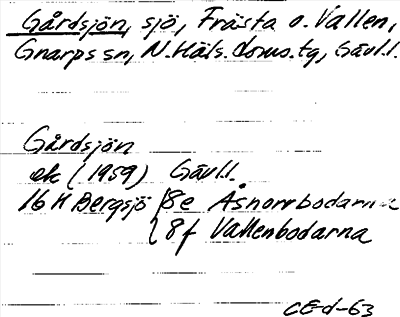 Gårdsjön, sjö, Frästa o. Vallen,
Gnarps sn, N. Häls. doms.tg, Gävl.l.
Gårdsjön
ek (1959) Gävl.l.
16 H Bergsjö 8e Åsnorrbodarna
8f Vallenbodarna
CE-d-63